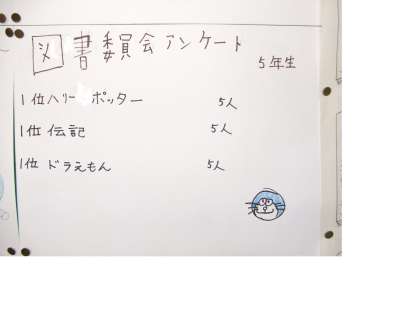 図書委員会アンケート
5年生
1位ハリーポッター 5人
1位 伝記 5人
1位 ドラえもん 5人